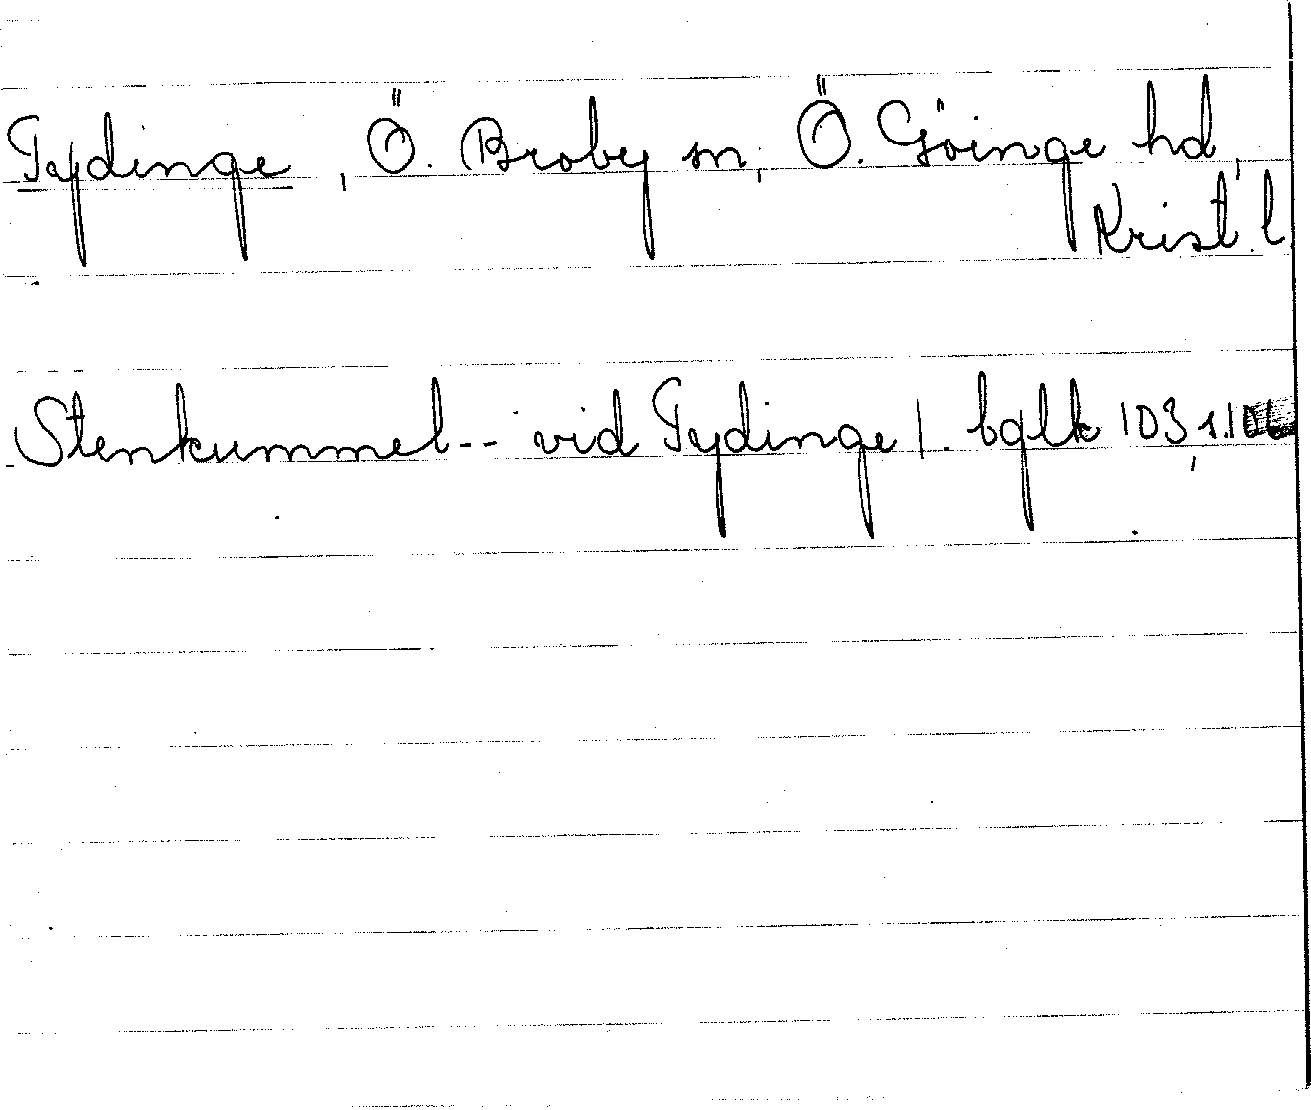 Tydinge, Ö. Broby sn, Ö. Göinge hd,
Krist. l.
Stenkummel -- vid Tydinge /. bglk 103